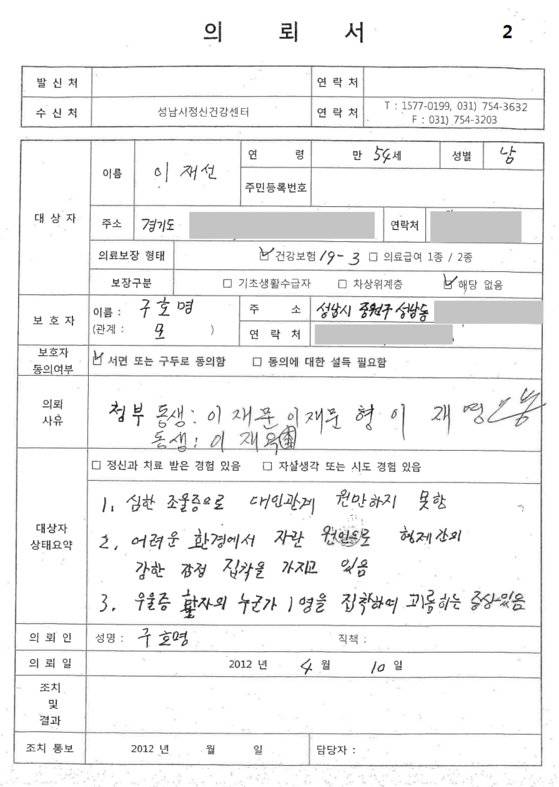 의 뢰 서 2
발 신 처 연 락 처
수 신 처 성남시정신건강센터 연 락 처 T : 1577-0199, 031) 754-3632
F : 031) 754-3203
대 상 자 이름 이재선 연 령 만 54세 성별 남
주민등록번호
주소 경기도 연락처
의료보장 형태 ☑ 건강보험 19-3 □ 의료급여 1종 / 2종
보장구분 □ 기초생활수급자 □ 차상위계층 ☑ 해당 없음
보 호 자 이름 : 구호명 주 소 성남시 중원구 성남동
(관계 : 모 ) 연 락 처
보호자 동의여부 ☑ 서면 또는 구두로 동의함 □ 동의에 대한 설득 필요함
의뢰 사유 첨부 동생: 이재문 이재문 형 이 재 영
동생: 이 재옥
대상자 상태요약 □ 정신과 치료 받은 경험 있음 □ 자살생각 또는 시도 경험 있음
1. 심한 조울증으로 대인관계 원만하지 못함
2. 어려운 환경에서 자란 원인으로 형제간의
강한 감정 집착을 가지고 있음
3. 우울증 환자의 누군가 1명을 집착하며 괴롭히는 증상있음
의 뢰 인 성명 : 구호명 직책 :
의 뢰 일 2012 년 4 월 10 일
조치
및
결과
조치 통보 2012 년 월 일 담당자 :